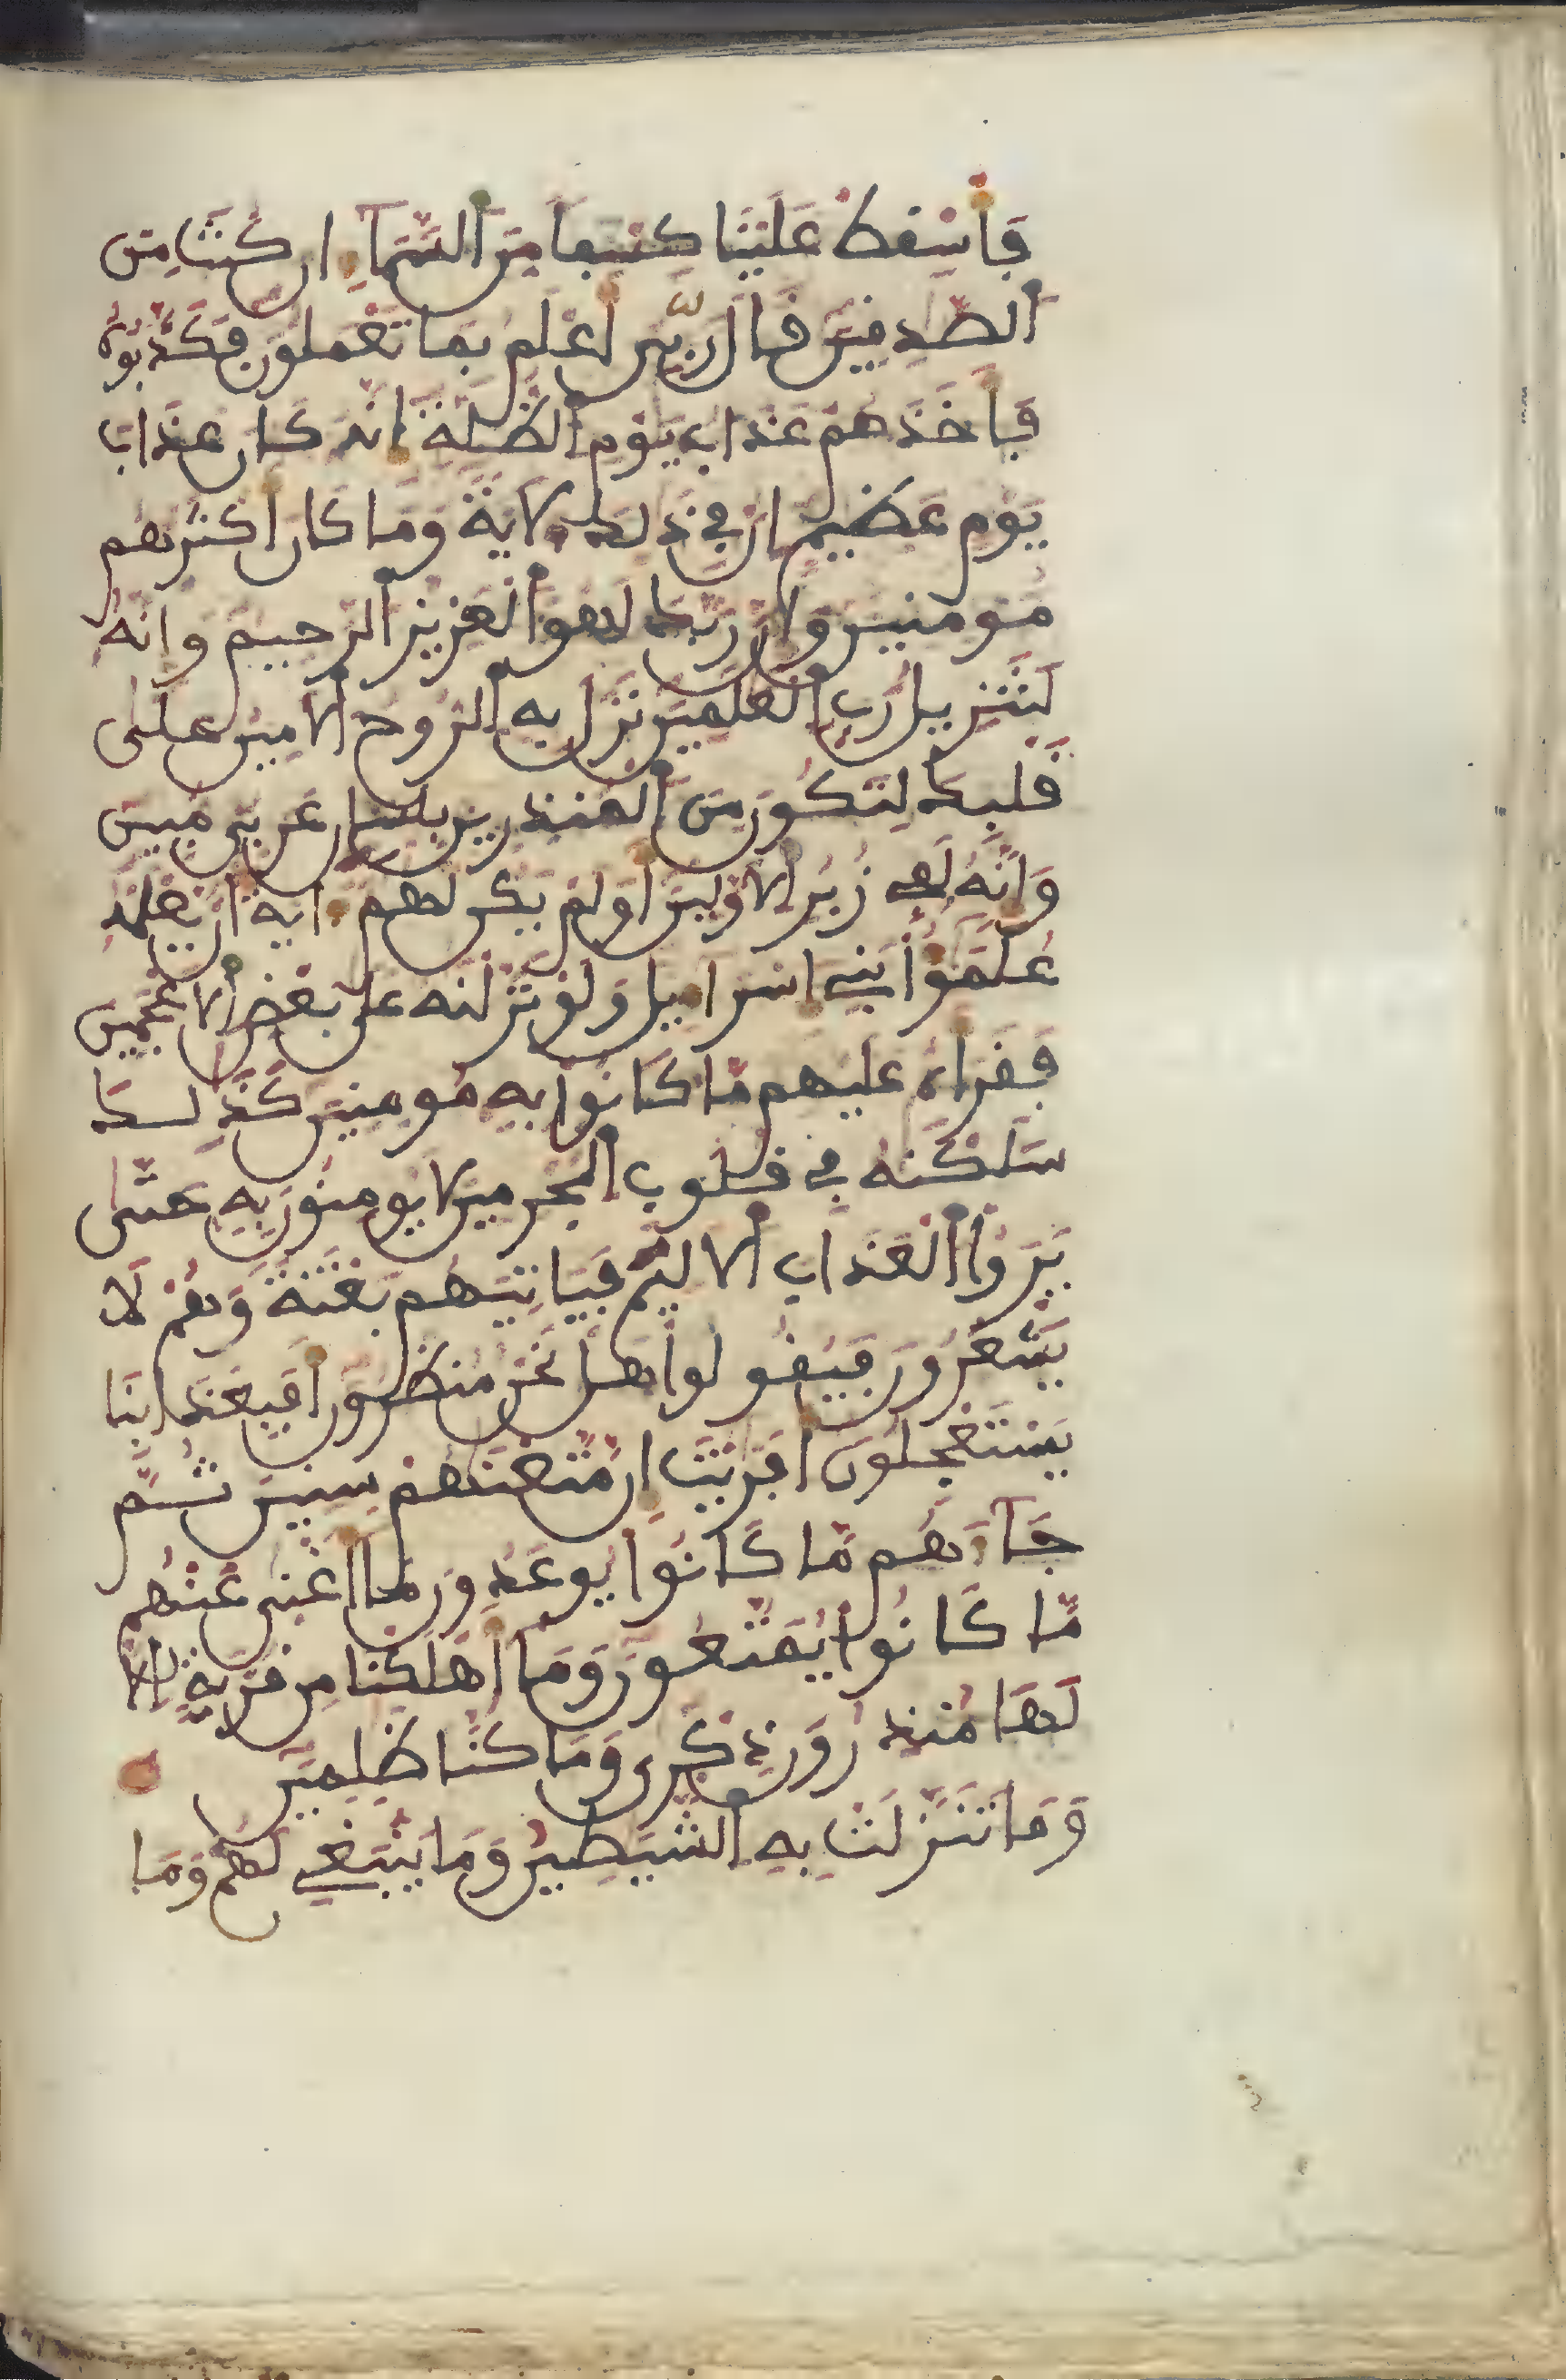 فَأَسْفِطْ عَلَيْنَا كِسْفاً مِّنَ ٱلسَّمَآءِ ان كُنتَ مِنَ
ٱلصَّدِفِينَ فَالَ رَبِّىَ أَعْلَمُ بِمَا تَعْمَلُونَ فَكَذَّبُوهُ
فَأَخَذَهُمْ عَذَابُ يَوْمِ ٱلظُّلَّةِ إِنَّهُ كَانَ عَذَابَ
يَوْمٍ عَظِيمٍ إِنَّ فِى ذَلِكَ لَأَيَةً وَمَا كَانَ أَكْثَرُهُم
مُّومِنِينَ وَإِنَّ رَبَّكَ لَهُوَ ٱلْعَزِيزُ ٱلرَّحِيمُ وَإِنَّهُ
لَتَنزِيلُ رَبِّ ٱلْعَلَمِينَ نَزَلَ بِهِ ٱلرُّوحُ ٱلَامِينُ عَلَى
فَلْبِكَ لِتَكُونَ مِنَ ٱلْمُنذِرِينَ بِلِسَانٍ عَرَبِىٍّ مُّبِينٍ
وَإِنَّهُ لَفِے زُبُرِ ٱلَاوَّلِينَ أَوَلَمْ يَكُن لَّهُمُ ءَايَةً أَنْ يَّعْلَمَهُ
عُلَمَٰؤُا بَنِے إِسْرَاءِيلَ وَلَوْ نَزَّلْنَهُ عَلَى بَعْضِ ٱلَاعْجَمِينَ
فَفَرَأَهُ عَلَيْهِم مَّا كَانُوا بِهِ مُومِنِينَ كَذَلِكَ
سَلَكْنَهُ فِے فُلُوبِ ٱلْمُجْرِمِينَ لَا يُومِنُونَ بِهِ حَتَّى
يَرَوُا ٱلْعَذَابَ ٱلَالِيمَ فَيَاتِيَهُم بَغْتَةً وَهُمْ لَا
يَشْعُرُونَ فَيَفُولُوا هَلْ نَحْنُ مُنظَرُونَ أَفَبِعَذَابِنَا
يَسْتَعْجِلُونَ أَفَرَيْتَ إِن مَّتَّعْنَهُمْ سِنِينَ ثُمَّ
جَآءَهُم مَّا كَانُوا يُوعَدُونَ مَا أَغْنَى عَنْهُم
مَّا كَانُوا يُمَتَّعُونَ وَمَا أَهْلَكْنَا مِن فَرْيَةٍ إِلَّا
لَهَا مُنذِرُونَ ذِكْرَى وَمَا كُنَّا ظَلِمِينَ
وَمَا تَنَزَّلَتْ بِهِ ٱلشَّيَطِينُ وَمَا يَنبَغِے لَهُمْ وَمَا